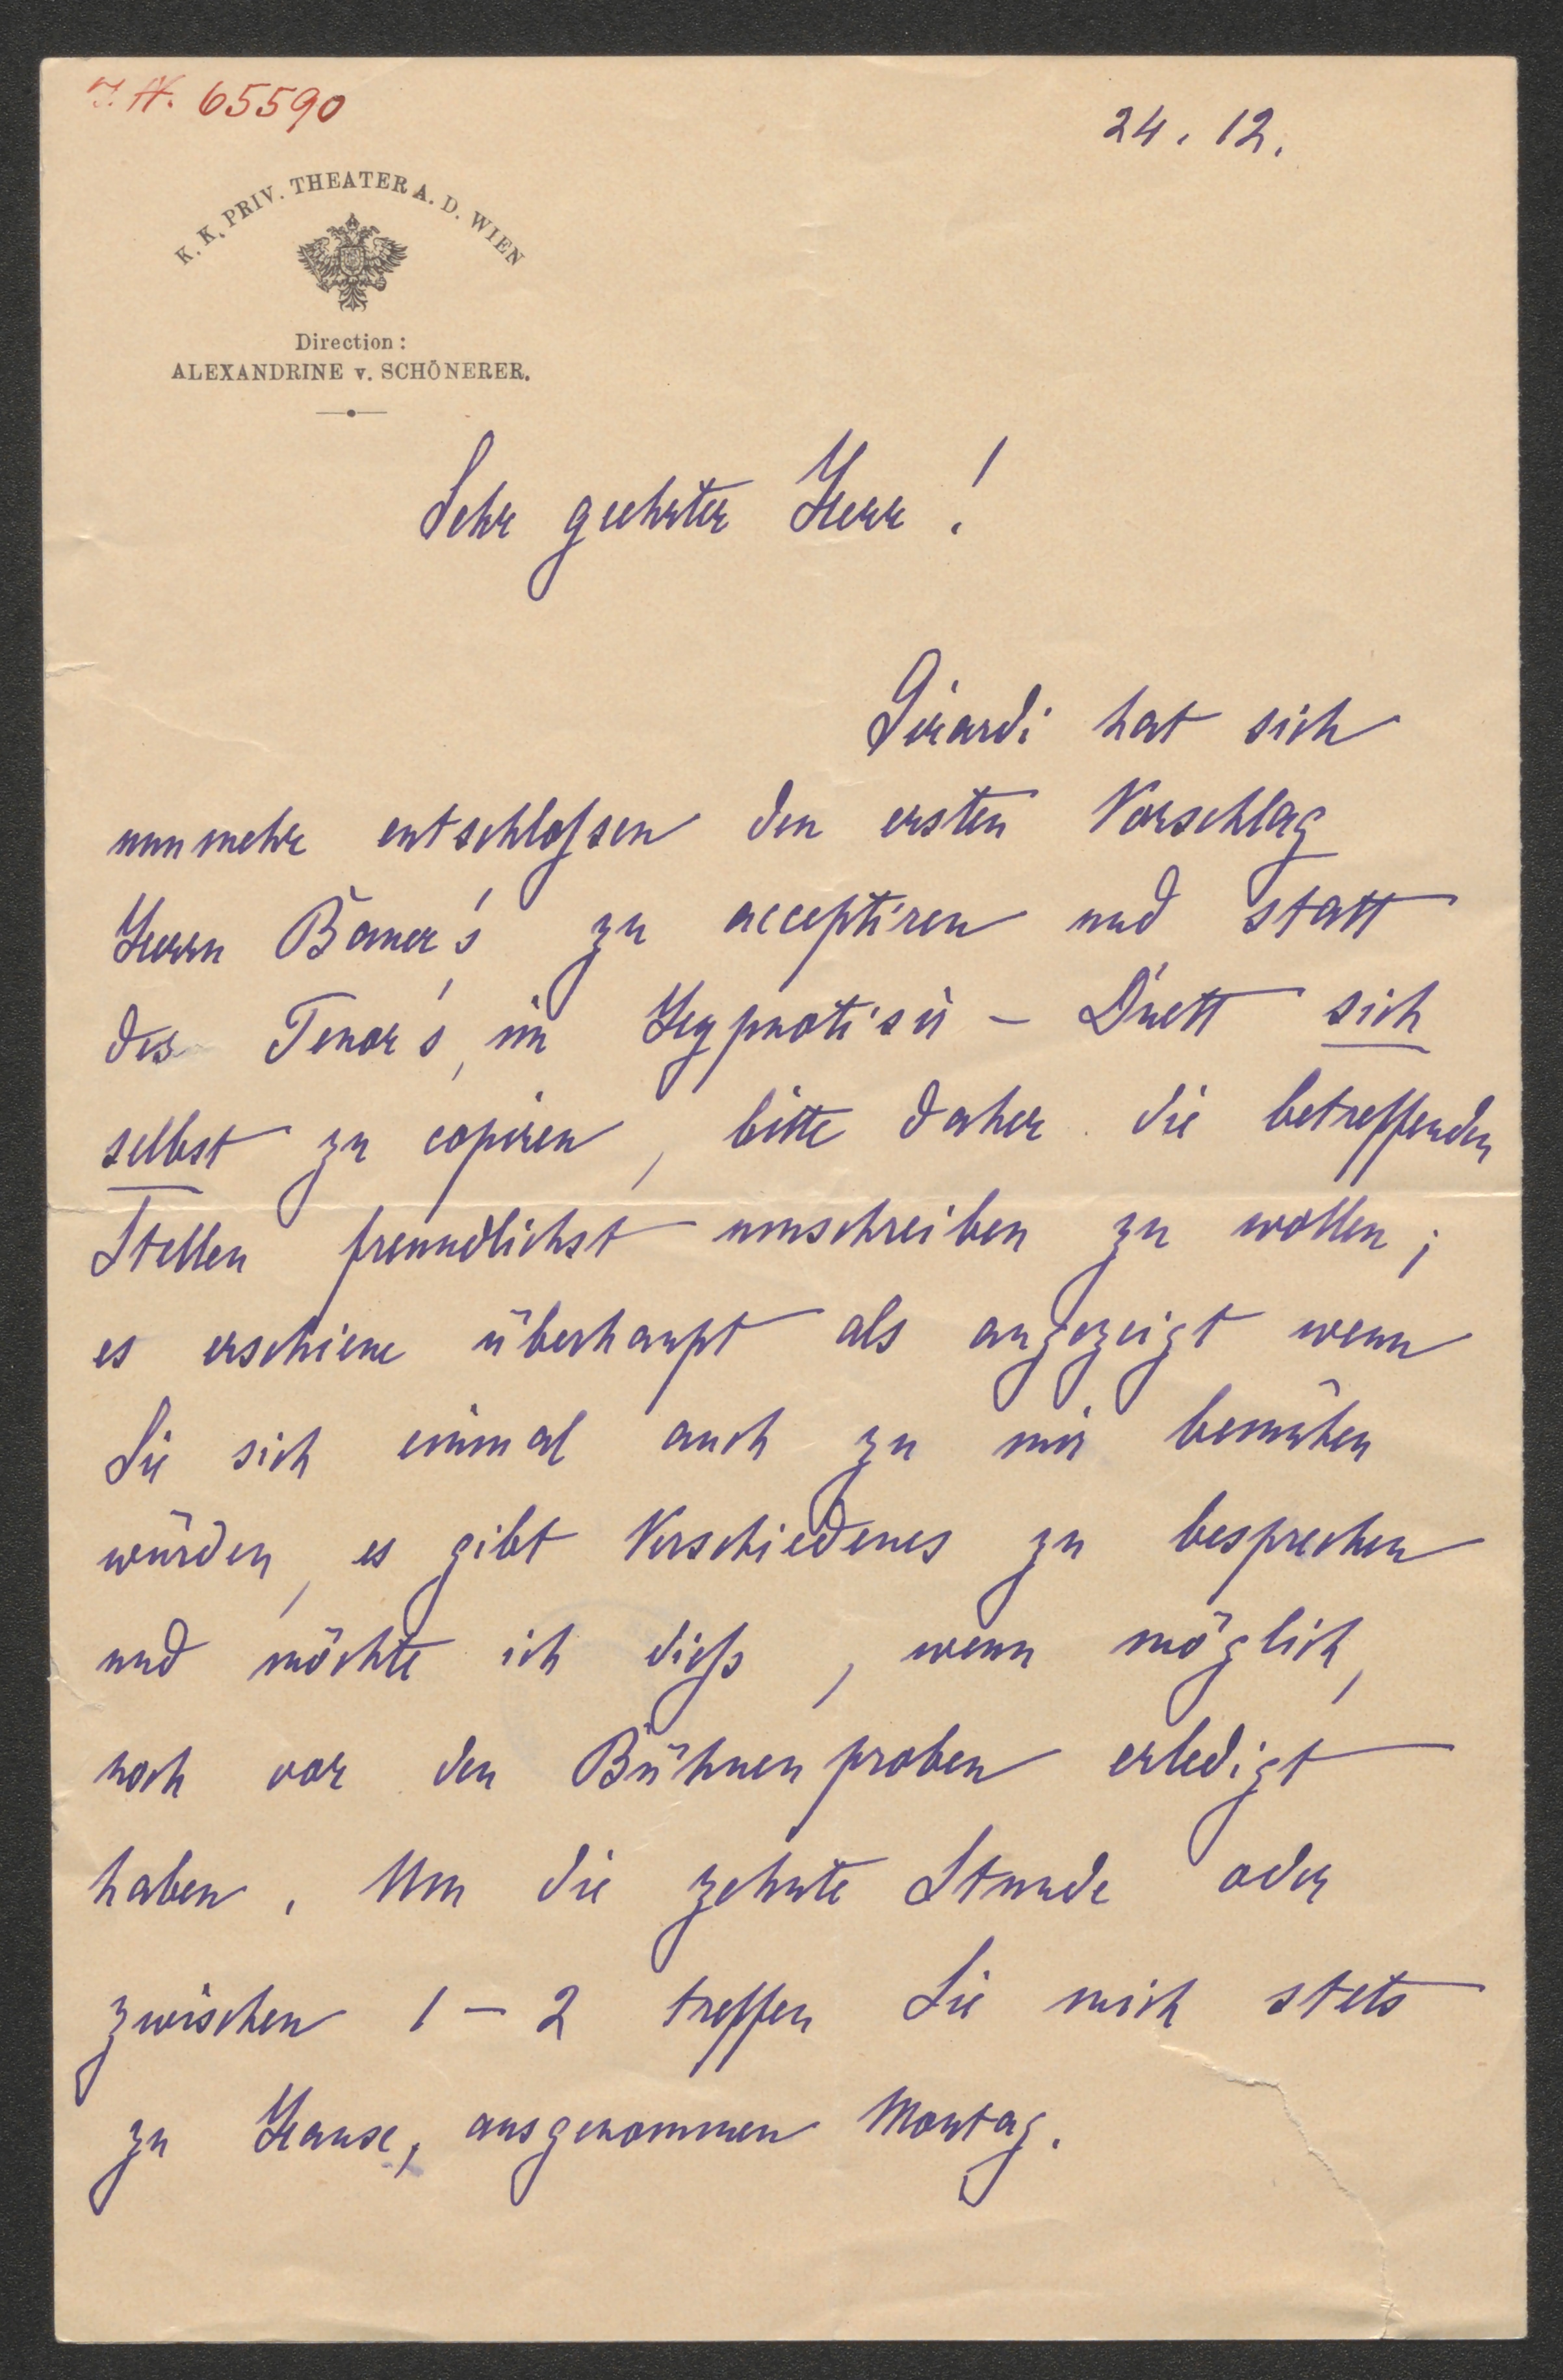 I. N. 65590
24. 12.
K. K. PRIV. THEATER A. D. WIEN
Direction:
ALEXANDRINE v. SCHÖNERER.
Sehr geehrter Herr!
Girardi hat sich
nunmehr entschloßen den ersten Vorschlag
Herrn Bauer's zu acceptiren und statt
des Tenor's, im Hypnotisir - Duett sich
selbst zu copiren, bitte daher die betreffenden
Stellen freundlichst umschreiben zu wollen;
es erschiene überhaupt als angezeigt wenn
Sie sich einmal auch zu mir bemühen
würden, es gibt Verschiedenes zu besprechen
und möchte ich dieß, wenn möglich,
noch vor den Bühnenproben erledigt
haben. Um die zehnte Stunde oder
zwischen 1 - 2 treffen Sie mich stets
zu Hause, ausgenommen Montag.